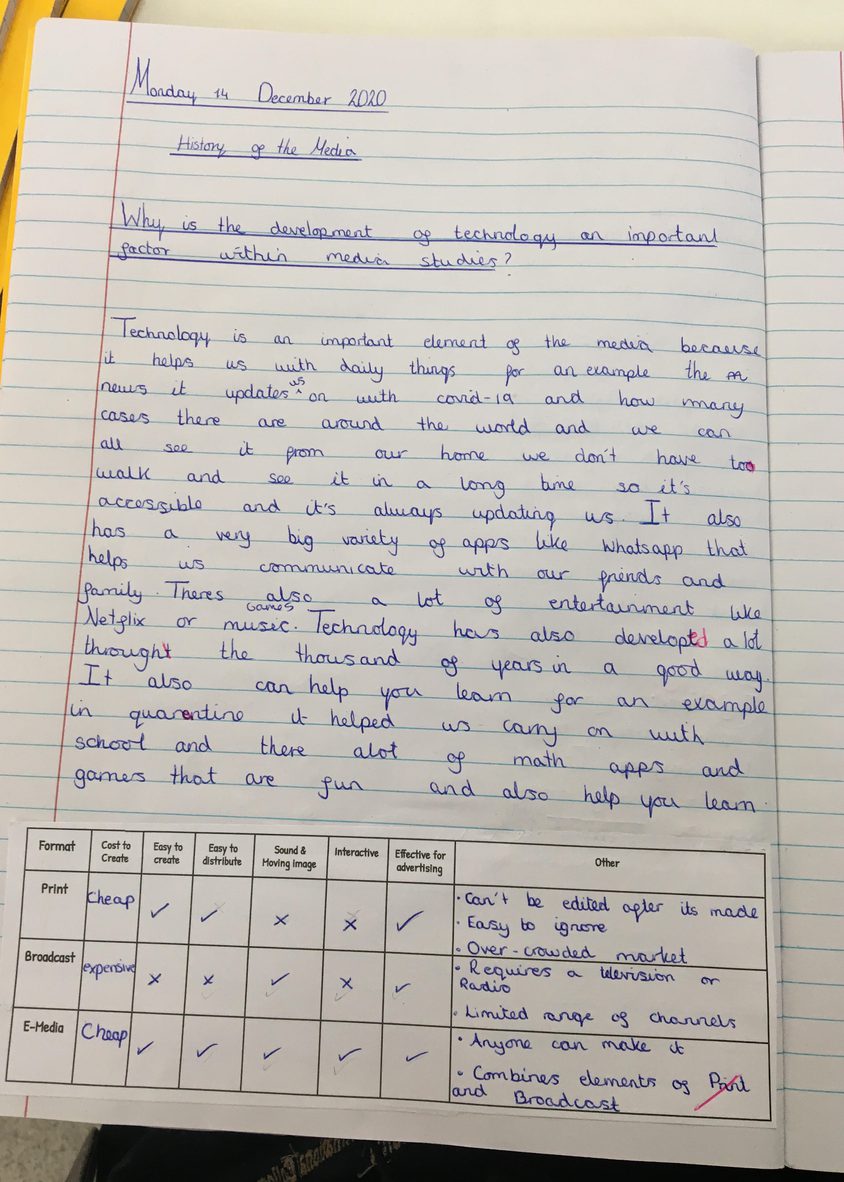 Monday 14 December 2020
History of the Media
Why is the development of technology an important
factor within media studies?
Technology is an important element of the media because
it helps us with daily things for an example the
news it updates us on with covid-19 and how many
cases there are around the world and we can
all see it from our home we don't have to
walk and see it in a long time so it's
accessible and it's always updating us. It also
has a very big variety of apps like whatsapp that
helps us communicate with our friends and
family. Theres also a lot of entertainment like
Netflix or games music. Technology has also developed a lot
throught the thousand of years in a good way.
It also can help you learn for an example
in quarentine it helped us carry on with
school and there alot of math apps and
games that are fun and also help you learn.
Format Cost to Create Easy to create Easy to distribute Sound & Moving Image Interactive Effective for advertising Other
Print Cheap ✓ ✓ × × ✓ • Can't be edited after its made
• Easy to ignore
• Over-crowded market
Broadcast expensive × × ✓ × ✓ • Requires a television or
Radio
• Limited range of channels
E-Media Cheap ✓ ✓ ✓ ✓ ✓ • Anyone can make it
• Combines elements of Print
and Broadcast